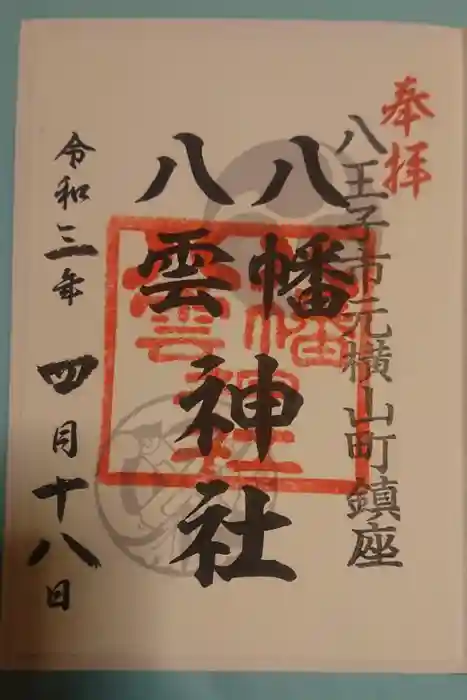 奉拝
八王子市元横山町鎮座
八幡
八雲
神社
令和三年 四月十八日